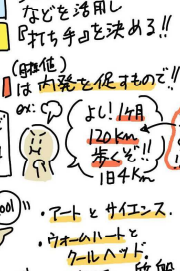 などを活用し
『打ち手』を決める!!
(自在値)
は内発を促すもので!!
ex:
よし!1ヶ月
120km
歩くぞ!!
1日4km
ool
・アートとサイエンス.
・ウォームハートと
クールヘッド.